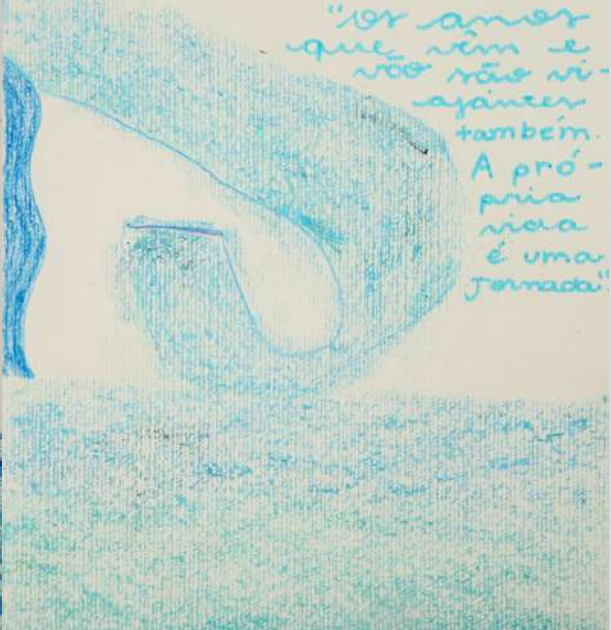 "os anos
que vêm e
vão são vi-
ajantes
também.
A pró-
pria
vida
é uma
Jornada"